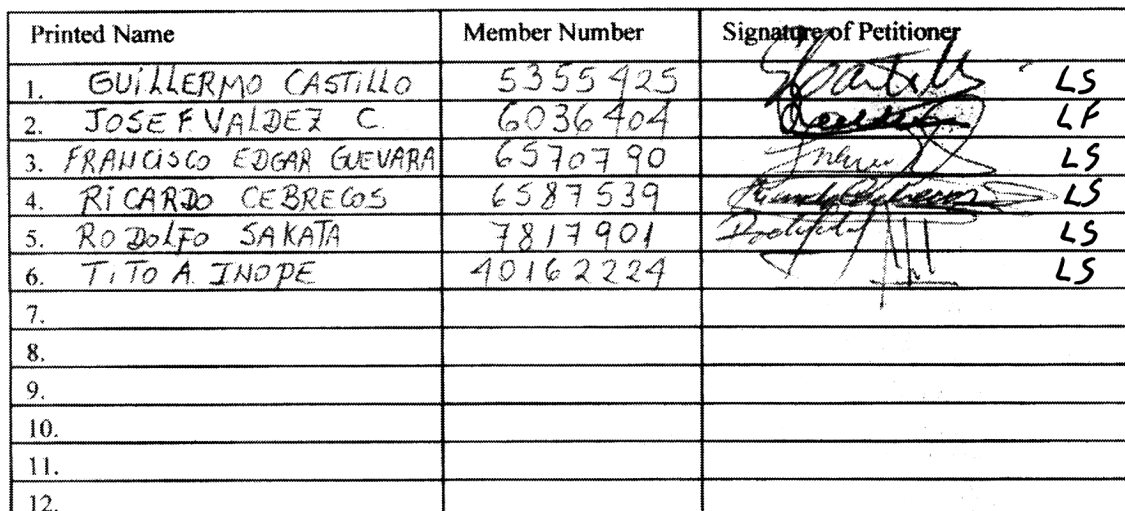 Printed Name Member Number Signature of Petitioner
1. GUILLERMO CASTILLO 5355425 LS
2. JOSE F. VALDEZ C. 6036404 LF
3. FRANCISCO EDGAR GUEVARA 6570790 LS
4. RICARDO CEBRECOS 6587539 LS
5. RODOLFO SAKATA 7817901 LS
6. TITO A. INOPE 40162224 LS
7.
8.
9.
10.
11.
12.